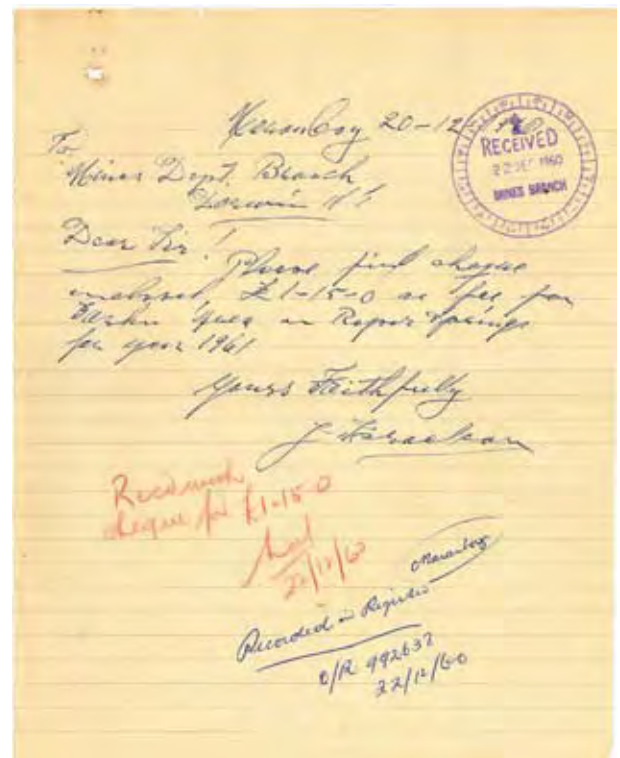 Maranboy 20-12
RECEIVED
22 DEC 1960
MINES BRANCH
To
Mines Dept. Branch
Darwin N.T
Dear Sir!
Please find cheque
enclosed, £1-15-0 as fee for
on Roper Springs
for year 1961
Yours Faithfully
J
Recd
cheque for £1-15-0
22/12/60
Maranboy
Recorded in Register
O/R 992632
22/12/60